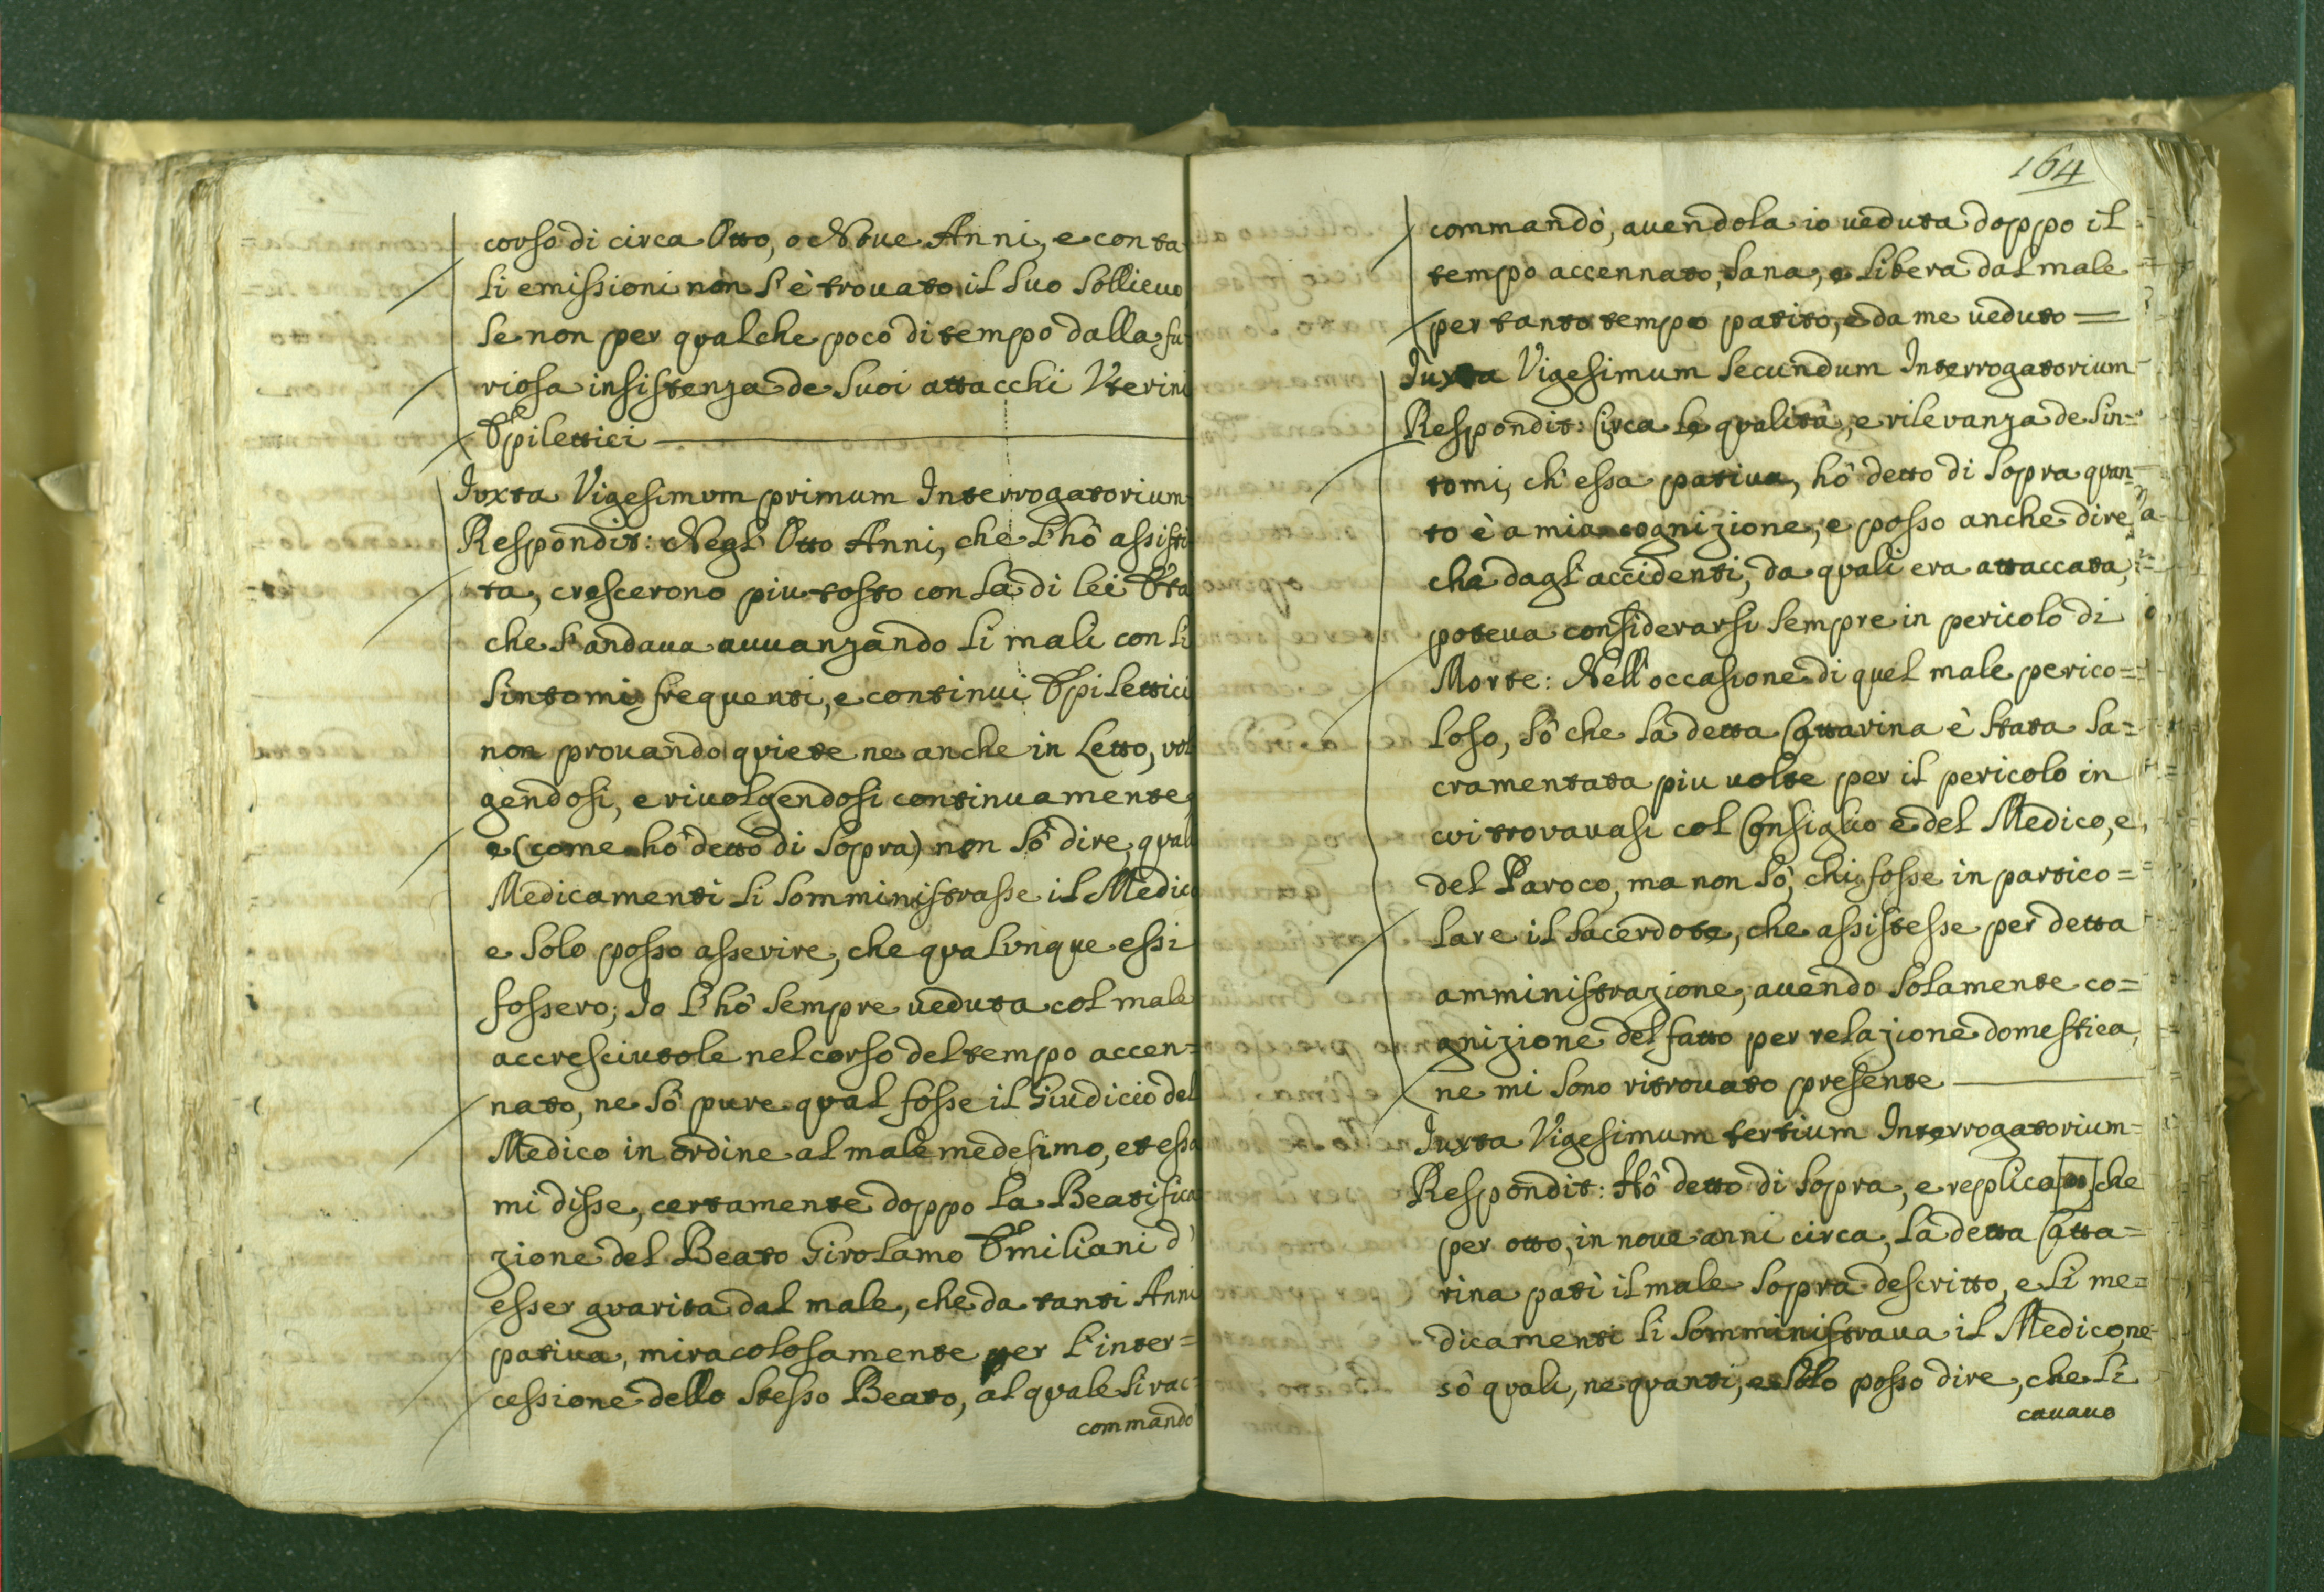 corso di circa Otto, o Nove Anni, e con ta
li emissioni non s'è trouato il suo sollieuo
se non per qualche poco di tempo dalla fu
riosa insistenza de suoi attacchi Vterini
Epilettici
Juxta Vigesimum primum Interrogatorium
Respondit: Negl' Otto Anni, che l'hò assisti
ta, crescerono piu tosto con la di lei Età
che s'andaua auuanzando li mali con li
sintomi frequenti, e continui Epilettici
non prouando quiete ne anche in Letto, vol
gendosi, e riuolgendosi continuamente,
e (come hò detto di sopra) non sò dire, quali
Medicamenti li somministrasse il Medico
e solo posso asserire, che qualunque essi
fossero; Io l'hò sempre ueduta col male
accresciutole nel corso del tempo accen=
nato, ne sò pure qual fosse il Giudicio del
Medico in ordine al male medesimo, et essa
mi disse, certamente doppo la Beatifica
zione del Beato Girolamo Emiliani d'
esser guarita dal male, che da tanti Anni
patiua, miracolosamente per l'inter=
cessione dello stesso Beato, al quale si rac=
commandò
164
commandò, auendola io ueduta doppo il
tempo accennato, sana, e libera dal male
per tanto tempo patito, e da me ueduto =
Juxta Vigesimum secundum Interrogatorium
Respondit: Circa le qualità, e rilevanza de sin=
tomi, ch'essa patiua, hò detto di sopra quan=
to è a mia cognizione, e posso anche dire
che dagl'accidenti, da quali era attaccata,
poteua considerarsi sempre in pericolo di
Morte: Nell'occasione di quel male perico=
loso, sò che la detta Cattarina è stata sa=
cramentata piu uolte per il pericolo in
cui trovauasi col Consiglio e del Medico, e
del Paroco, ma non sò, chi fosse in partico=
lare il sacerdote, che assistesse per detta
amministrazione, auendo solamente co=
gnizione del fatto per relazione domestica,
ne mi sono ritrouato presente
Juxta Vigesimum tertium Interrogatorium=
Respondit: Hò detto di sopra, e replica che
per otto, in noue anni circa, la detta Catta=
rina patì il male sopra descritto, e li me=
dicamenti li somministraua il Medico, ne
sò quali, ne quanti, e solo posso dire, che li
cauauo